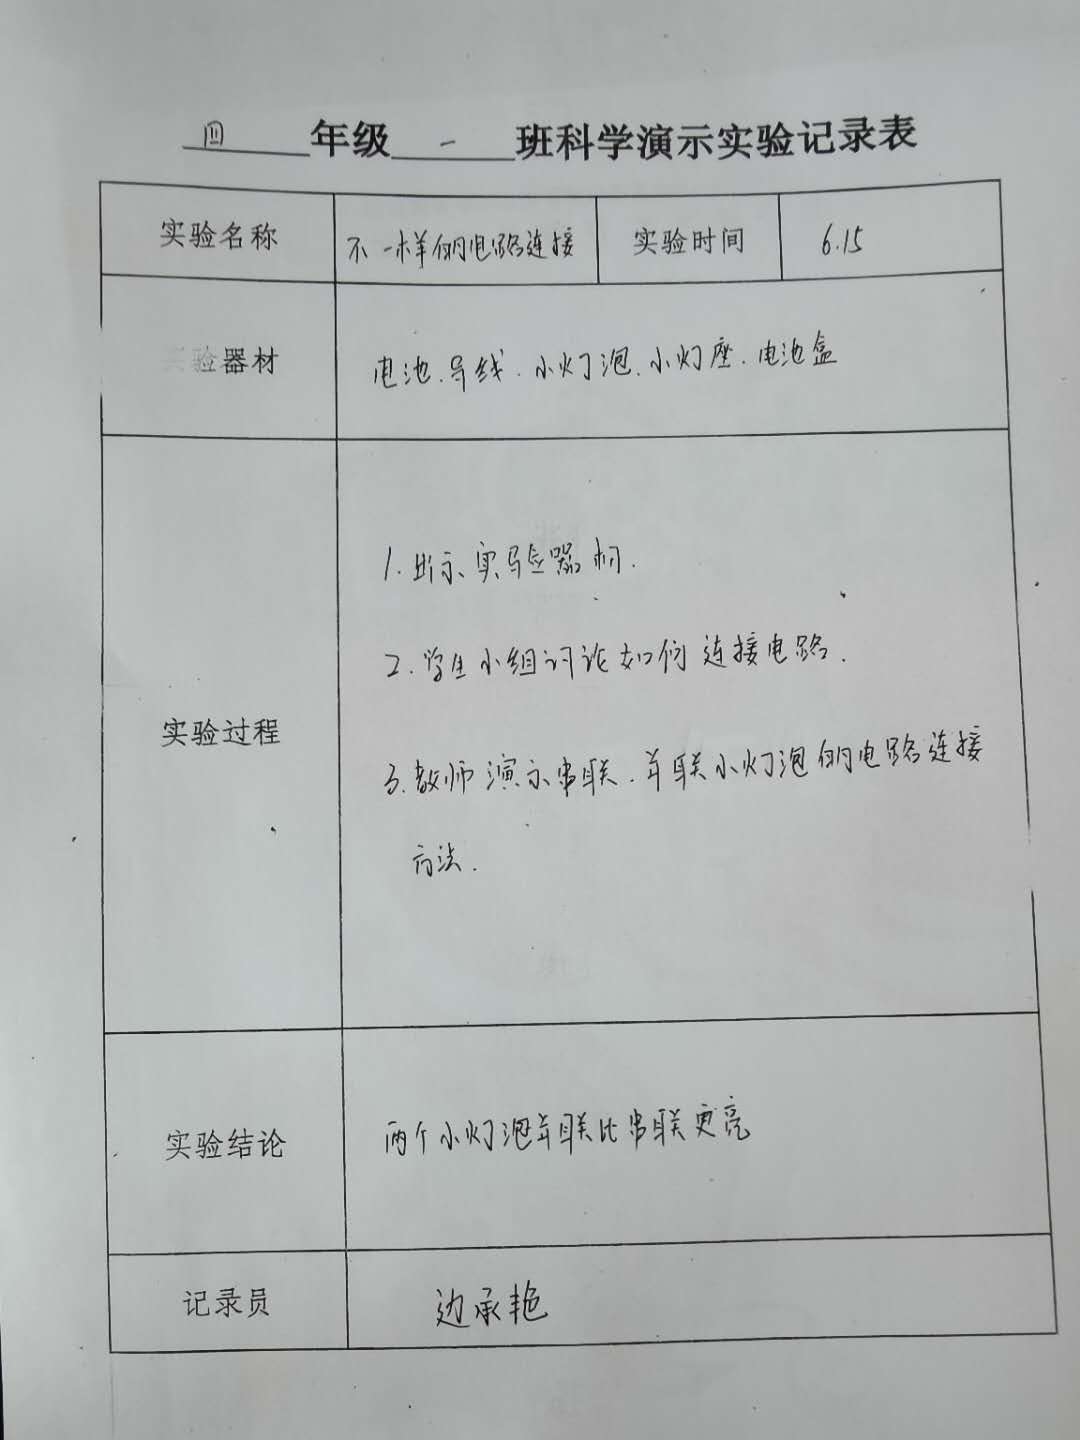 四年级一班科学演示实验记录表
实验名称 不一样的电路连接 实验时间 6.15
实验器材 电池、导线、小灯泡、小灯座、电池盒
1. 出示实验器材.
2. 学生小组讨论如何连接电路.
实验过程
3. 教师演示串联、并联小灯泡的电路连接
方法.
实验结论 两个小灯泡并联比串联更亮
记录员 边承艳